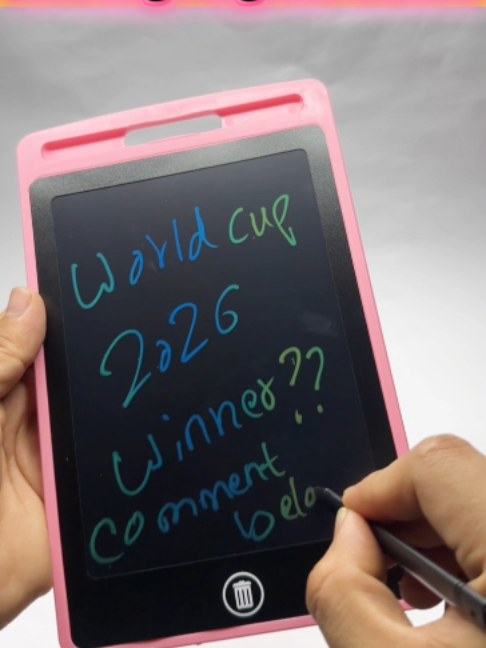 World cup
2026
Winner??
Comment
belo